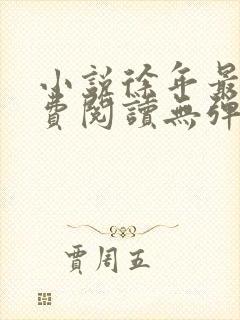 小說徐年最
費閱讀無彈
賈周五